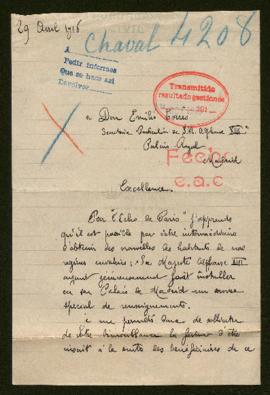 29 Avril 1916
Chaval 4208
A
Pedir informes
Que se hace así
Devolver
Transmitido
resultado gestiones
a Don Emilio Torres
Secrétaire Particulier de S.M. Alphonse XIII
Palacio Royal
Madrid
Fecho
e.a.c
Excellence.
Par "l'Echo de Paris" j'apprends
qu'il est possible par votre intermédiaire
d'obtenir des nouvelles des habitants de nos
régions envahies; Sa Majesté Alphonse XIII
ayant généreusement fait installer
en son Palais de Madrid un service
spécial de renseignements.
me permets donc de solliciter
de votre bienveillance la faveur d'être
inscrit à la suite des bénéficiaires de ce